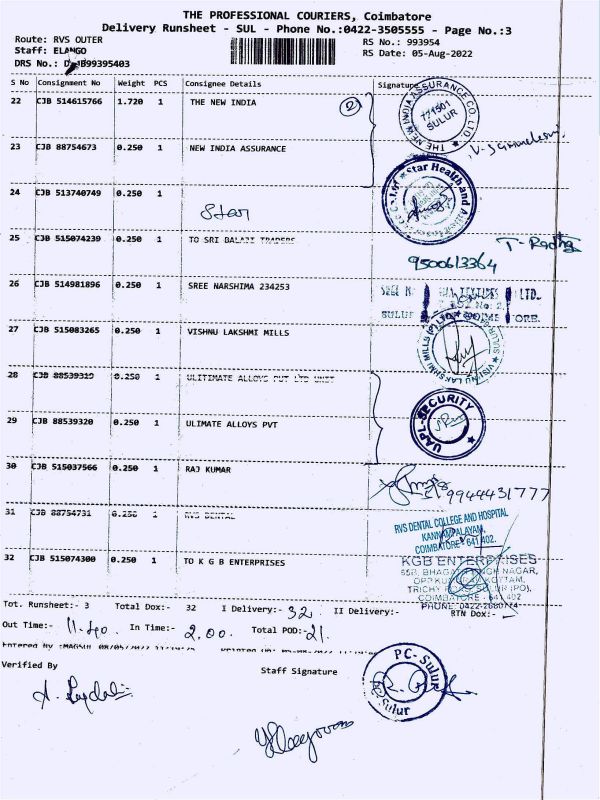 THE PROFESSIONAL COURIERS, Coimbatore
Delivery Runsheet - SUL - Phone No.:0422-3505555 - Page No.:3
Route: RVS OUTER
RS No.: 993954
Staff: ELANGO
RS Date: 05-Aug-2022
DRS No.: D JB99395403
S No Consignment No Weight PCS Consignee Details Signature
22 CJB 514615766 1.720 1 THE NEW INDIA 2
THE NEW INDIA ASSURANCE CO. LTD
771501
SULUR
23 CJB 88754673 0.250 1 NEW INDIA ASSURANCE
24 CJB 513740749 0.250 1
Star
Star Health and
25 CJB 515074239 0.250 1 TO SRI BALAJI TRADERS
T. Radha
9500613364
26 CJB 514981896 0.250 1 SREE NARSHIMA 234253
TEXTILES LTD.
SULUR COIMBATORE.
27 CJB 515083265 0.250 1 VISHNU LAKSHMI MILLS
VISHNU LAKSHMI MILLS (P) LTD
SULUR
28 CJB 88539319 0.250 1 ULITIMATE ALLOYS PVT LTD UNIT
29 CJB 88539320 0.250 1 ULIMATE ALLOYS PVT
UAPL-SECURITY
30 CJB 515037566 0.250 1 RAJ KUMAR
9944431777
31 CJB 88754731 0.250 1 RVS DENTAL
RVS DENTAL COLLEGE AND HOSPITAL
KANNAMPALAYAM,
COIMBATORE - 641 402.
32 CJB 515074300 0.250 1 TO K G B ENTERPRISES
KGB ENTERPRISES
65B, BHAGATH SINGH NAGAR,
TRICHY ROAD, SULUR (PO),
COIMBATORE - 641 402
PHONE: 0422-2680774
Tot. Runsheet:- 3 Total Dox:- 32 I Delivery:- 32 II Delivery:- RTN Dox:-
Out Time:- 11.40 In Time:- 2.00. Total POD:- 21
Entered By :MAGSUL 08/05/2022 11:19:25
Verified By
Staff Signature
PC-Sulur
PC-Sulur